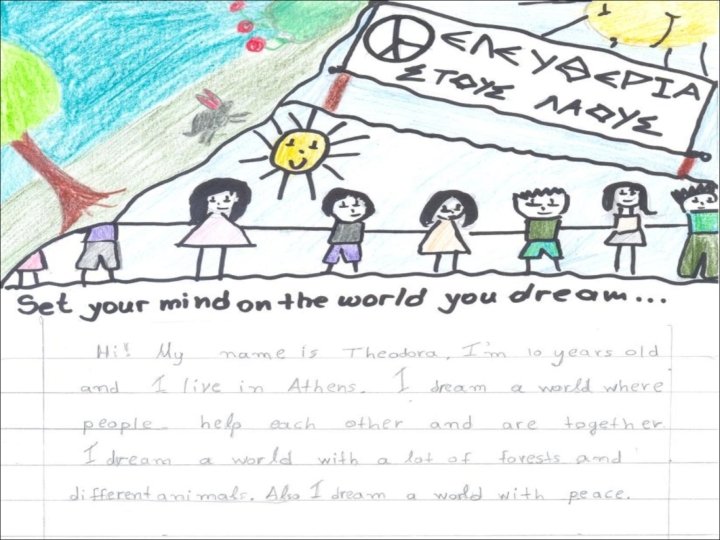 ΕΛΕΥΘΕΡΙΑ
ΣΤΟΥΣ ΛΑΟΥΣ
Set your mind on the world you dream...
Hi! My name is Theodora, I'm 10 years old
and I live in Athens. I dream a world where
people help each other and are together
I dream a world with a lot of forests and
different animals. Also I dream a world with peace.